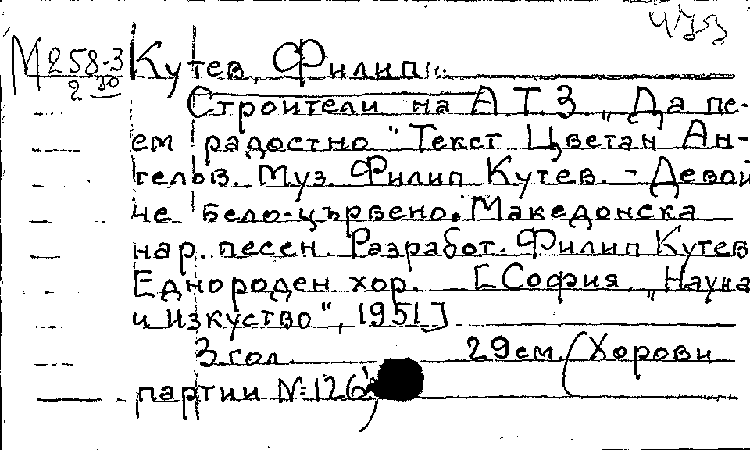 473
М258-3 Кутев, Филип.
20
Строители на АТЗ „Да пе-
ем радостно" Текст Цветан Ан-
гелов. Муз. Филип Кутев. – Девой
че бело-цървено. Македонска
нар. песен. Разработ. Филип Кутев
Еднороден хор. [София „Наука
и изкуство", 1951]
3 гол. 29 см. (Хорови
партии № 126)